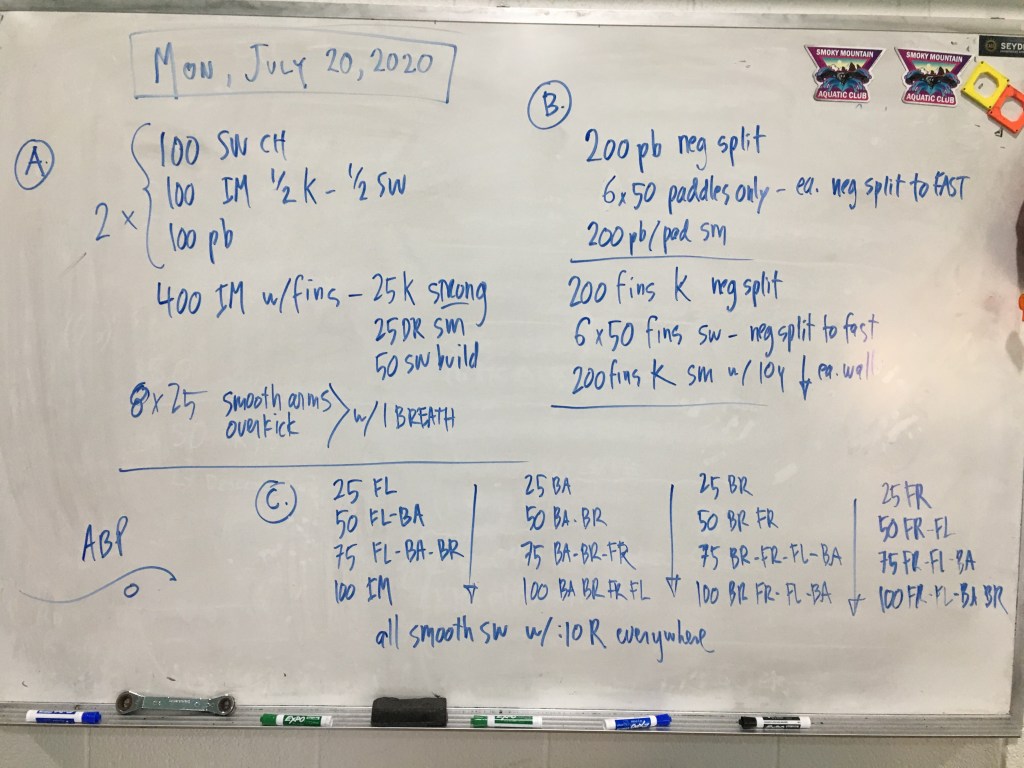 MON, JULY 20, 2020
A.
2 x
100 SW CH
100 IM 1/2 K - 1/2 SW
100 pb
400 IM w/fins - 25K strong
25DR sm
50 SW build
8x25 smooth arms
overkick
w/ 1 BREATH
B.
200 pb neg split
6x50 paddles only - ea. neg split to FAST
200 pb/pad sm
200 fins K neg split
6x50 fins sw - neg split to fast
200 fins K sm w/ 10y ↓ ea. wall
ABP
C.
25 FL
50 FL-BA
75 FL-BA-BR
100 IM
25 BA
50 BA-BR
75 BA-BR-FR
100 BA BR FR FL
25 BR
50 BR FR
75 BR-FR-FL-BA
100 BR FR-FL-BA
25 FR
50 FR-FL
75 FR-FL-BA
100 FR-FL-BA BR
all smooth sw w/ :10 R everywhere
SMOKY MOUNTAIN
AQUATIC CLUB
SMOKY MOUNTAIN
AQUATIC CLUB
EXPO